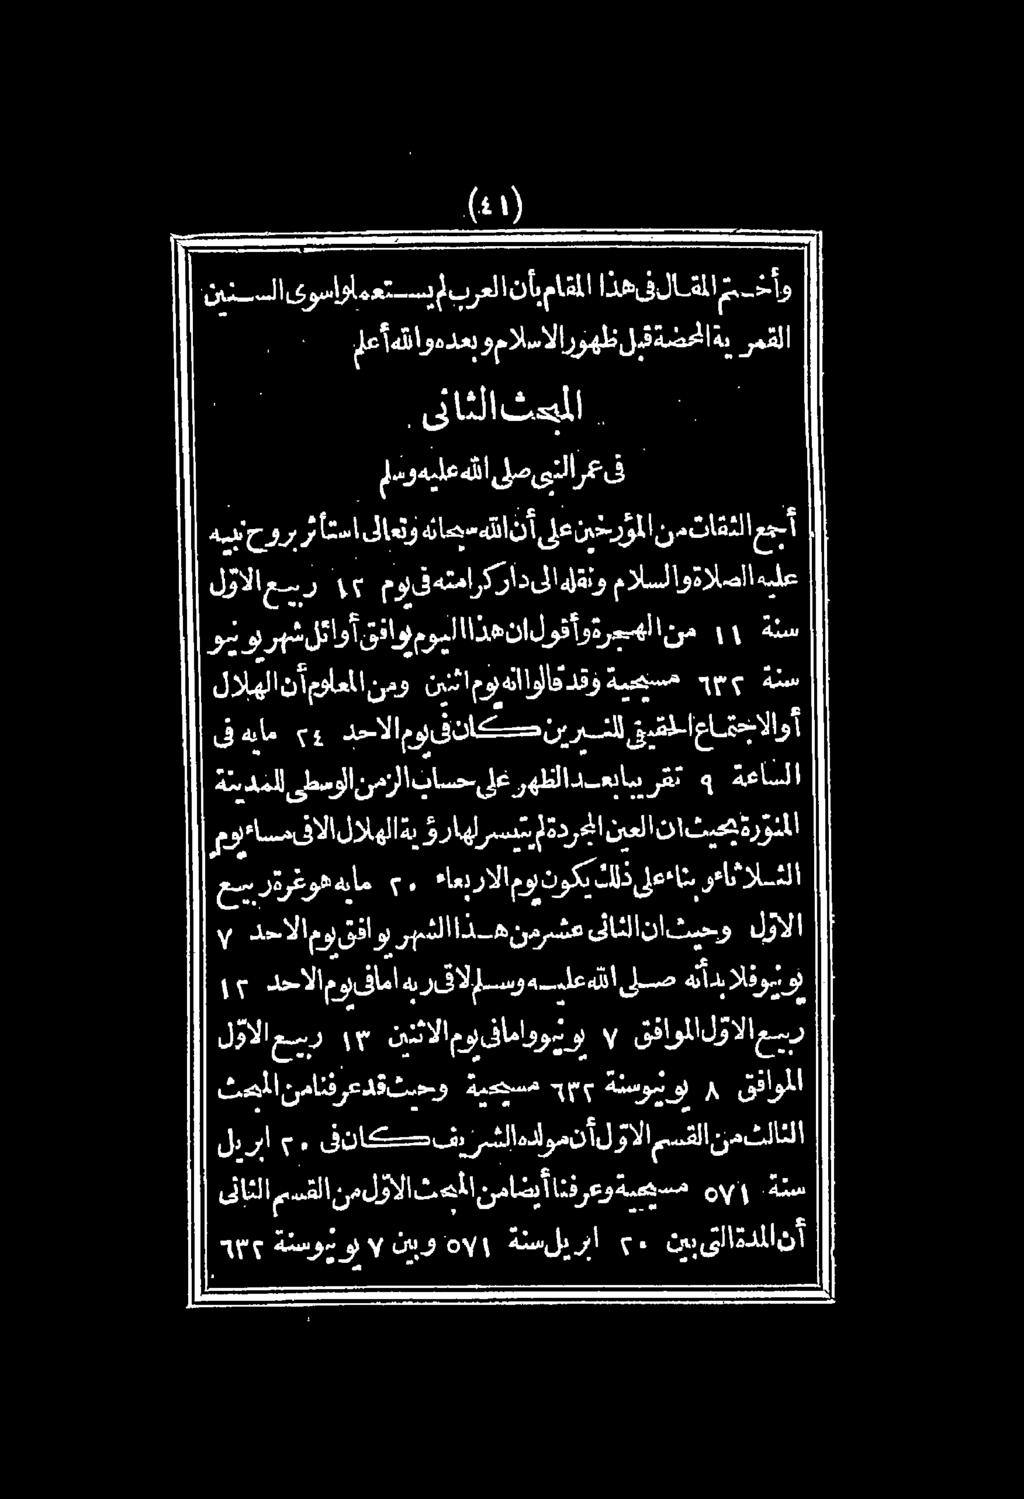 (٤١)
وأختم المقال فى هذا المقام بأن العرب لم يستعملوا سوى السنين
القمرية المحضة قبل ظهور الاسلام وبعده والله أعلم
المبحث الثانى
فى عمر النبى صلى الله عليه وسلم
أجمع الثقات من المؤرخين على أن الله سبحانه وتعالى استأثر بروح نبيه
عليه الصلاة والسلام ونقله الى دار كرامته فى يوم ١٢ ربيع الاول
سنة ١١ من الهجرة وأقول ان هذا اليوم يوافق أوائل شهر يونيو
سنة ٦٣٢ مسيحية وقد قالوا انه يوم اثنين ومن المعلوم أن الهلال
أو الاجتماع الحقيقى للنيرين كان فى يوم الاحد ٢٤ مايه فى
الساعة ٩ تقريبا بعد الظهر على حساب الزمن الوسطى للمدينة
المنورة بحيث ان العين المجردة لم يتيسر لها رؤية الهلال الا فى مساء يوم
الثلاثاء وبناء على ذلك يكون يوم الاربعاء ٢٠ مايه هو غرة ربيع
الاول وحيث ان الثانى عشر من هذا الشهر يوافق يوم الاحد ٧
يونيو فلا بد أنه صلى الله عليه وسلم لاقى ربه اما فى يوم الاحد ١٢
ربيع الاول الموافق ٧ يونيو واما فى يوم الاثنين ١٣ ربيع الاول
الموافق ٨ يونيو سنة ٦٣٢ مسيحية وحيث قد عرفنا من المبحث
الثالث من القسم الاول أن مولده الشريف كان فى ٢٠ ابريل
سنة ٥٧١ مسيحية وعرفنا أيضا من المبحث الاول من القسم الثانى
أن المدة التى بين ٢٠ ابريل سنة ٥٧١ وبين ٧ يونيو سنة ٦٣٢